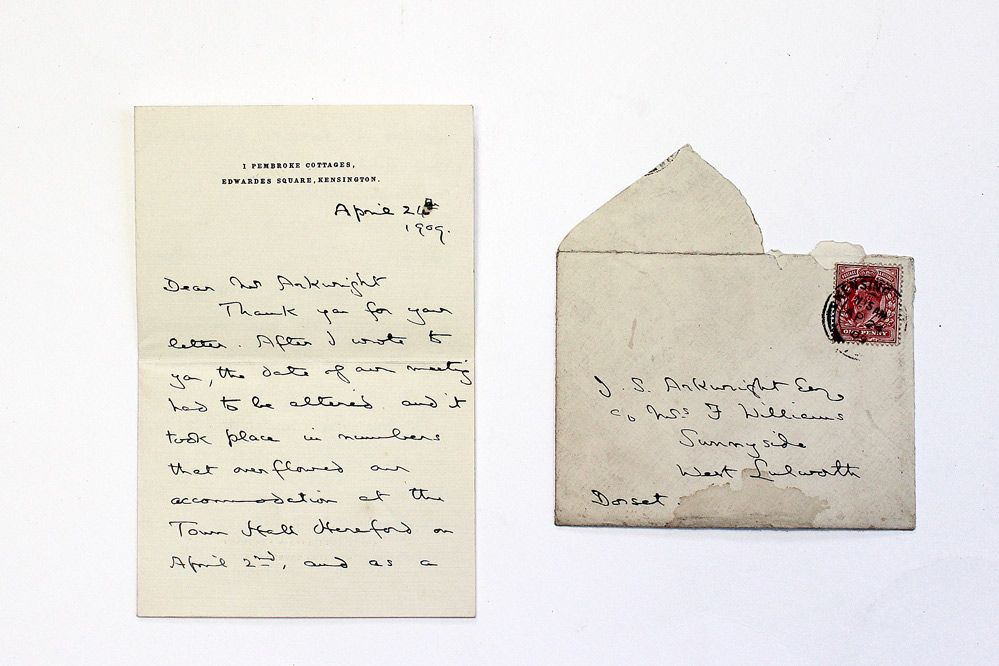 1 PEMBROKE COTTAGES,
EDWARDES SQUARE, KENSINGTON.
April 24th
1909.
Dear Mr Arkwright
Thank you for your
letter. After I wrote to
you, the date of our meeting
had to be altered and it
took place in numbers
that overflowed our
accommodation at the
Town Hall Hereford on
April 2nd, and as a
KENSINGT
11.15 AM
AP 24
09
ONE PENNY
J. S. Arkwright Esq
c/o Mrs F Williams
Sunnyside
West Lulworth
Dorset